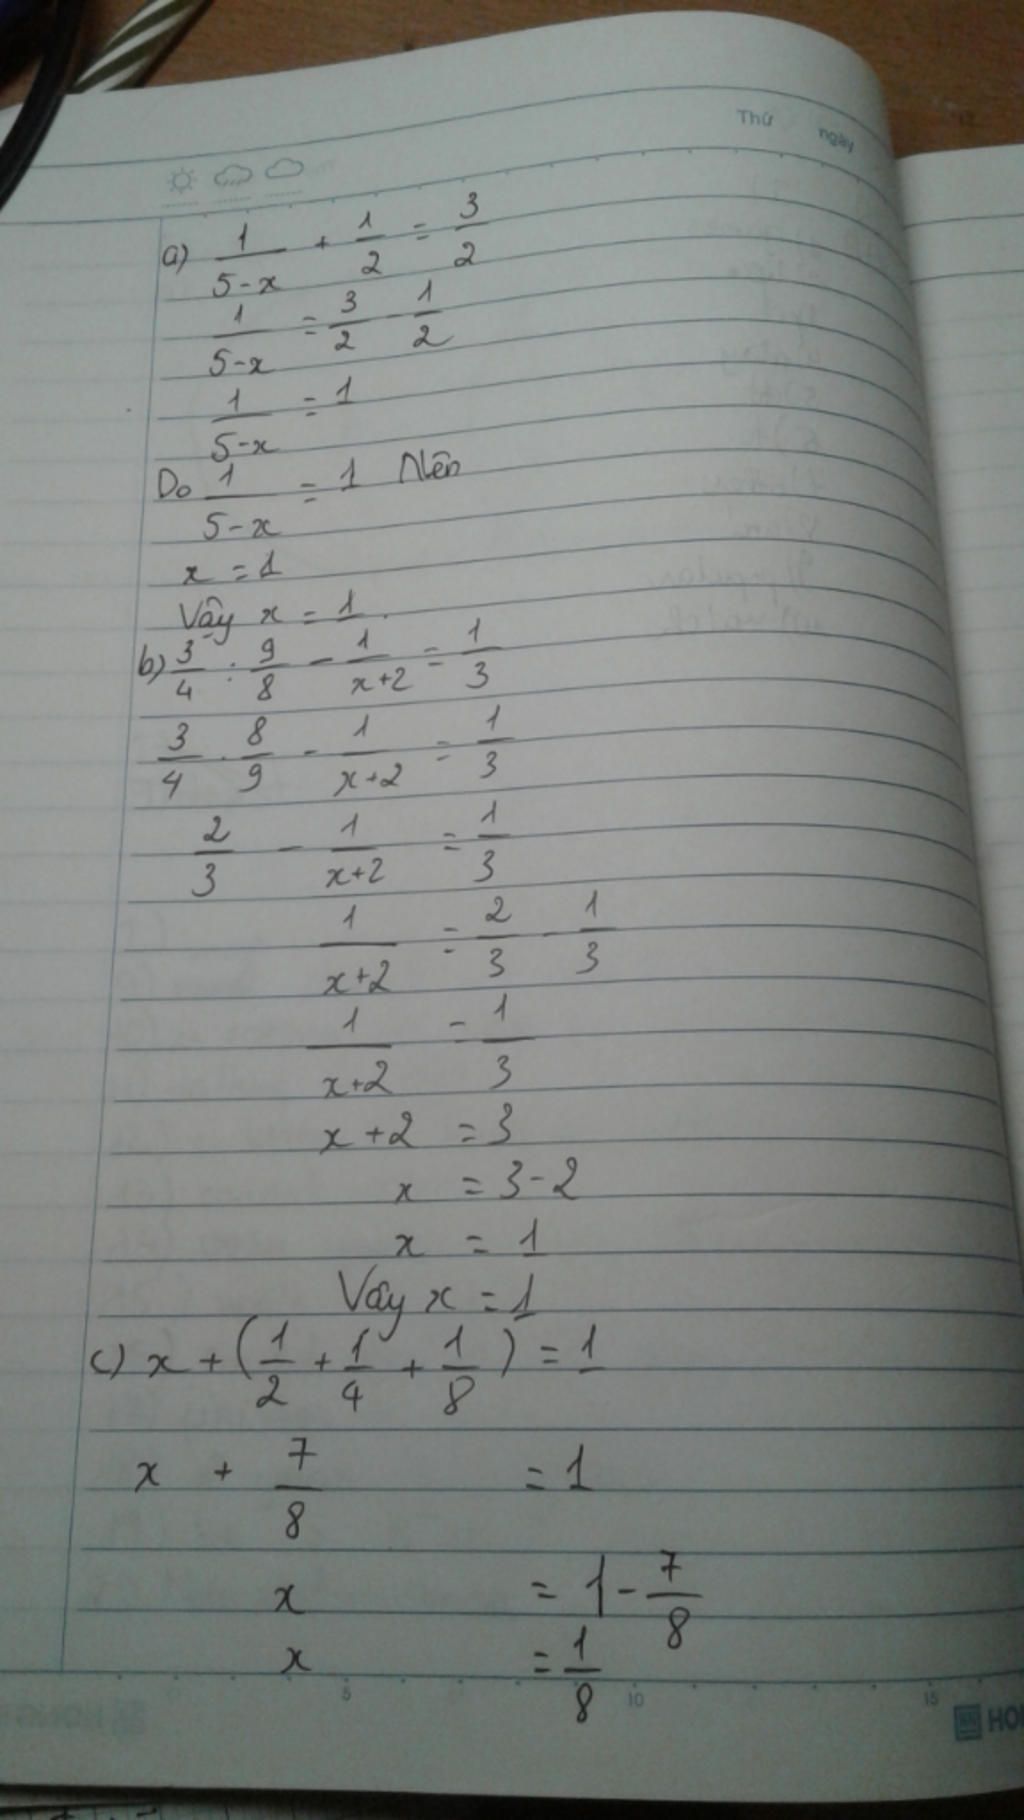 Thứ ngày
a) 1/(5-x) + 1/2 = 3/2
1/(5-x) = 3/2 - 1/2
1/(5-x) = 1
Do 1/(5-x) = 1 Nên
x = 1
Vậy x = 1.
b) 3/4 : 9/8 - 1/(x+2) = 1/3
3/4 . 8/9 - 1/(x+2) = 1/3
2/3 - 1/(x+2) = 1/3
1/(x+2) = 2/3 - 1/3
1/(x+2) = 1/3
x+2 = 3
x = 3-2
x = 1
Vậy x = 1
c) x + (1/2 + 1/4 + 1/8) = 1
x + 7/8 = 1
x = 1 - 7/8
x = 1/8
5 10 15